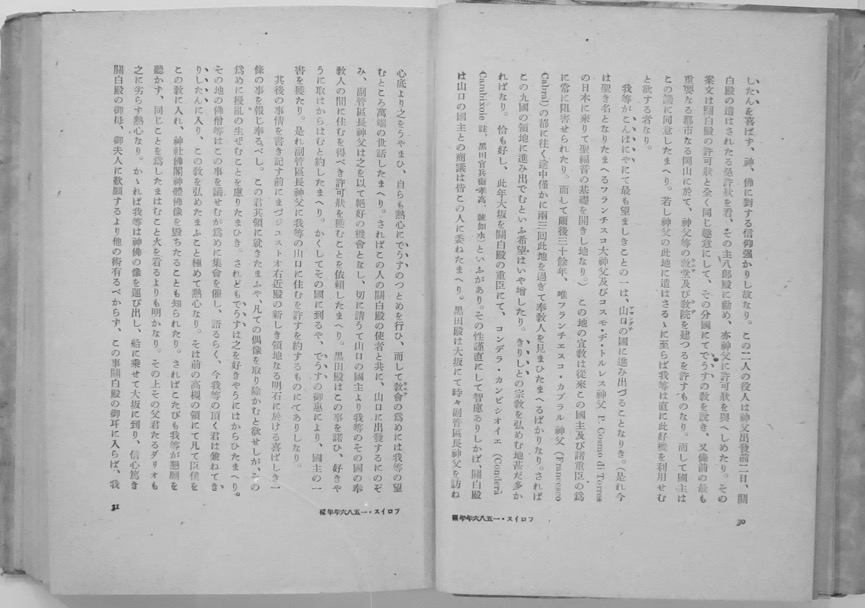 したんを喜ばず、神、佛に對する信仰强かりし故なり。この二人の役人は神父出發前二日、關
白殿の遣はされたる免許狀を看、その主八郎殿に勸め、亦神父に許可狀を與へしめたり。その
案文は關白殿の許可狀と全く同じ趣意にして、その分國にてでうすの敎を說き、又備前の最も
重要なる都市なる岡山に於て、神父等の會堂及び敎院を建つるを許すものなり。而して國主は
この議に同意したまへり。若し神父の此地に遣はさるゝに至らば我等は直に此好機を利用せむ
と欲する者なり。
我等がこんぱにやにて最も望ましきことの一は、山口の國に進み出づることなりき。(是れ今
は聖き名となりたまへるフランチスコ大神父及びコスモ・デ・トルレス神父 P. Cosmo di Torres
の日本に來りて聖福音の基礎を開きし地なり。) この地の宣敎は從來この國主及び諸重臣の爲
に常に阻害せられたり。而して爾後三十餘年、唯フランチェスコ・カブラル神父 (Francesco
Cabral) の都に往く途中僅かに兩三回此地を過ぎて奉敎人を見まひたまへるばかりなり。されば
この九國の領地に進み出でむといふ希望はいや增したり。きりしとの宗敎を弘めむ地甚だ多か
ればなり。恰も好し、此年大坂を關白殿の重臣にて、コンデラ・カンビショイエ (Conderà
Cambixoie 註、黑田官兵衞孝高、號如水) といふがあり。その性謹直にして智慮ありしかば、關白殿
は山口の國主との商議は皆この人に委ねたまへり。黑田殿は大坂にて時々副管區長神父を訪ね
30
フロイス・一五八六年年報
心底より之をうやまひ、自らも熱心にでうすのつとめを行ひ、而して敎會の爲めには我等の望
むところ萬端の世話したまへり。さればこの人の關白殿の使者と共に、山口に出發するにのぞ
み、副管區長神父は之を以て絕好の機會となし、切に請うて山口の國主より我等のその國の奉
敎人の間に住むを得べき許可狀を獲むことを依賴したまへり。黑田殿はこの事を諾ひ、好きや
うに取はからはむと約したまへり。かくしてその國に到るや、でうすの御惠により、國主の一
書を獲たり。是れ副管區長神父に我等の山口に住むを許すを約するものにてありしなり。
其後の事情を書き記す前にまづジュスト右近殿の新しき領地なる明石に於ける喜ばしき一
條の事を報じ奉るべし。この君其領に就きたまふや、凡ての偶像を取り除かむと欲せしが、その
爲めに擾亂の生ぜむことを慮りたまひき。されどもでうすは之を好きやうにはからひたまへり。
その地の佛僧等はこの事を議せむが爲めに集會を催し、語るらく、今我等の頂く君は兼ねてき
りしたんに入り、この敎を弘めたまふこと極めて熱心なり。そは前の高槻の領にて凡て臣僕を
この敎に入れ、神社佛閣神體佛像を毀ちたることも知られたり。さればこたびも我等が懇願を
聽かず、同じことを爲したまはむこと火を看るよりも明かなり。その上その父君たるダリオも
之に劣らず熱心なり。かゝれば我等は神佛の像を運び出し、船に乘せて大坂に到り、信心篤き
關白殿の御母、御夫人に歎願するより他の術有るべからず、この事關白殿の御耳に入らば、我
31
フロイス・一五八六年年報